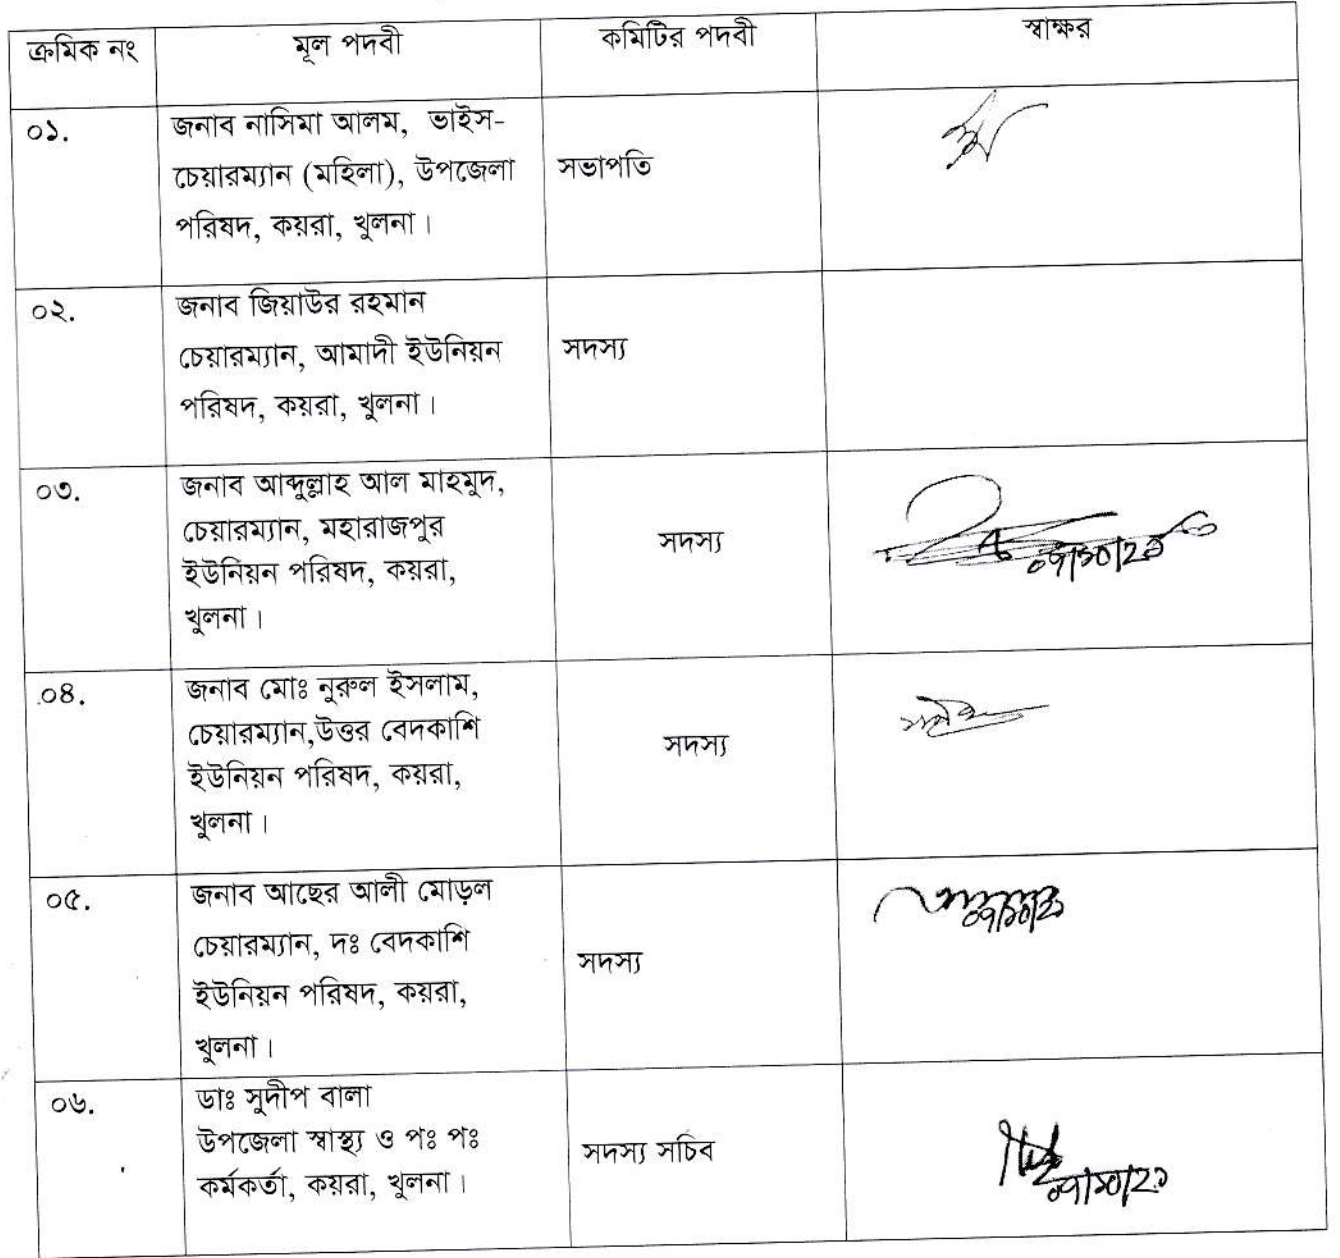 ক্রমিক নং মূল পদবী কমিটির পদবী স্বাক্ষর
০১.
জনাব নাসিমা আলম, ভাইস-
চেয়ারম্যান (মহিলা), উপজেলা
পরিষদ, কয়রা, খুলনা।
সভাপতি
০২.
জনাব জিয়াউর রহমান
চেয়ারম্যান, আমাদী ইউনিয়ন
পরিষদ, কয়রা, খুলনা।
সদস্য
০৩.
জনাব আব্দুল্লাহ আল মাহমুদ,
চেয়ারম্যান, মহারাজপুর
ইউনিয়ন পরিষদ, কয়রা,
খুলনা।
সদস্য
০৪.
জনাব মোঃ নুরুল ইসলাম,
চেয়ারম্যান,উত্তর বেদকাশি
ইউনিয়ন পরিষদ, কয়রা,
খুলনা।
সদস্য
০৫.
জনাব আছের আলী মোড়ল
চেয়ারম্যান, দঃ বেদকাশি
ইউনিয়ন পরিষদ, কয়রা,
খুলনা।
সদস্য
০৬.
ডাঃ সুদীপ বালা
উপজেলা স্বাস্থ্য ও পঃ পঃ
কর্মকর্তা, কয়রা, খুলনা।
সদস্য সচিব